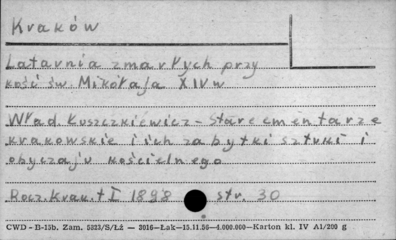 Kraków
Latarnia zmarłych przy
kość św. Mikołaja XIV w
Wład. Łuszczkiewicz - Stare cmentarze
krakowskie i ich zabytki sztuki i
obyczaju kościelnego
Rocz. Krak. t I 1898 str. 30
CWD - B-15b. Zam. 5823/S/Łż — 3016 — Łak — 15.11.56 — 4.000.000 — Karton kl. IV A1/200 g